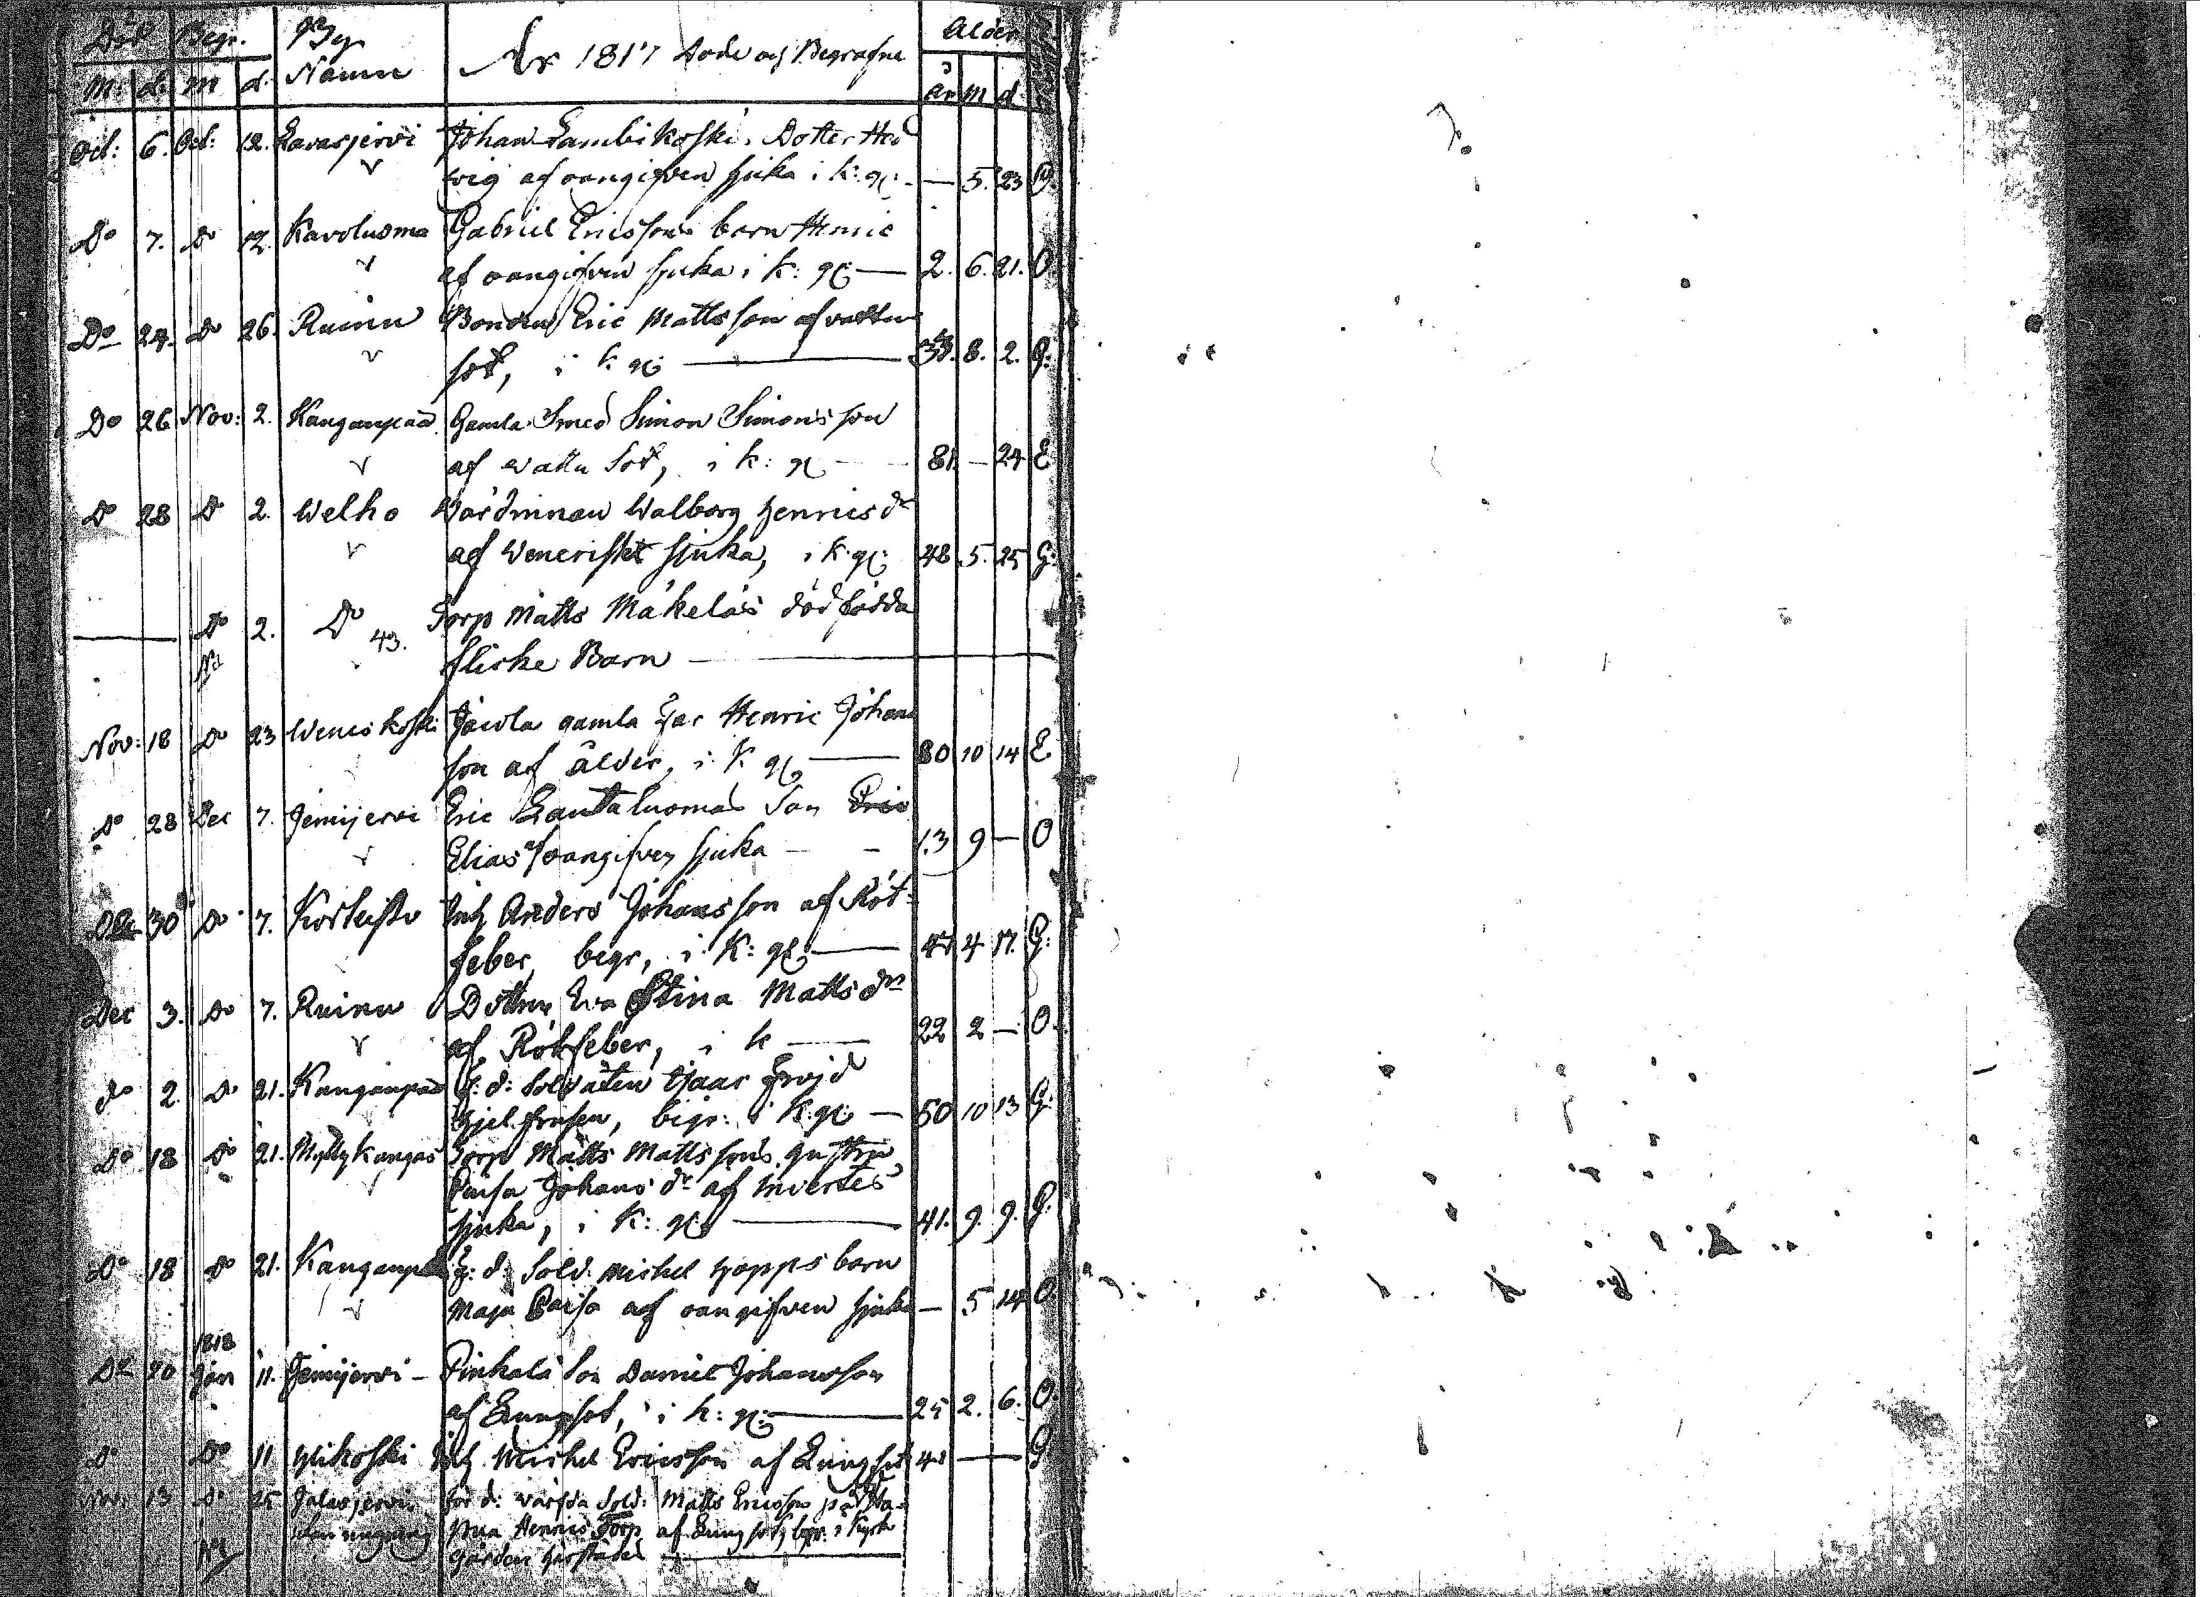 Död Begr. By År 1817 Döde och Begrafne Ålder
M: d: M d. Namn år M d
Oct: 6. Oct: 12. Kavasjervi Johan Lambikoskis Dotter Hed
wig af oangifven sjuka i k: g: — 5. 23 O.
Do 7. Do 12. Karoluoma Gabriel Ericssons barn Henric
af oangifven sjuka i k: g: — 2. 6. 21. O.
Do 24. Do 26. Ruinu Bonden Eric Mattsson af vattu
sot, i k: g: — 8. 2. G:
Do 26 Nov: 2. Kanganpää Gamla Smed Simon Simonsson
af wattu Sot, i k: g — 81 — 24 E
Do 28 Do 2. Welho Wärdinnan Walborg Henricsdr
af Weneriskt sjuka, i k: g: 48 5. 25 G:
— Do 2. Do 43. Torp Matts Mäkeläs dödfödda
flicke Barn —
Nov: 18 Do 23 Weneskoski gamla Henric Johans
son af ålder, i k: g — 80 10 14 E
Do 28 Dec 7. Jemijervi Eric Lautaluomas Son Eric
Elias af oangifven sjuka — — 13 9 — O
30 Do 7. Inh Anders Johansson af Röt-
feber, begr, i k: g — 4 17. G:
Dec 3. Do 7. Ruinu Dottren Eva Stina Mattsdr
af Rötfeber, i k — 22 2 — O.
do 2. Do 21. Kanganpää F: d: Soldaten Fröjd
, begr: i k: g: — 50 10 13 G:
Do 18 Do 21. Myllykangas Torp Matts Mattssons hustru
Caisa Johansdr af invertes
sjuka, i k: g: — 41. 9. 9. G.
Do 18 Do 21. Kanganpää F: d: Sold. Michel Hopps barn
Maja Caisa af oangifven sjuka — 5 14 O.
1818
Do 20 Jan 11. Jemijervi — Son Daniel Johansson
af Lungsot, i k: g: — 25 2. 6. O.
Do Do 11 Ylikoski Inh Michel Ericsson af Lungsot — — G
Nov: 13 Do 25 Jalasjervi för d: wärfda Sold: Matts Ericsson på
Henrics Torp af Lungsot, begr: i kyrk
gården härstädes —